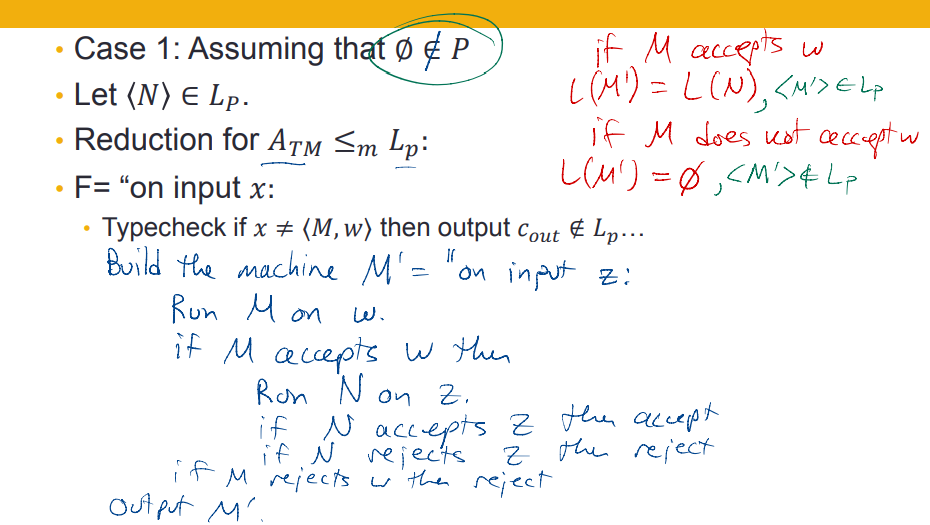 • Case 1: Assuming that ∅ ∉ P
• Let ⟨N⟩ ∈ L_P.
• Reduction for A_TM ≤_m L_p:
• F= “on input x:
• Typecheck if x ≠ ⟨M, w⟩ then output c_out ∉ L_p…
Build the machine M' = "on input z:
Run M on w.
if M accepts w then
Run N on z.
if N accepts z then accept
if N rejects z then reject
if M rejects w then reject
Output M'.
if M accepts w
L(M') = L(N), <M'> ∈ L_P
if M does not accept w
L(M') = ∅, <M'> ∉ L_P